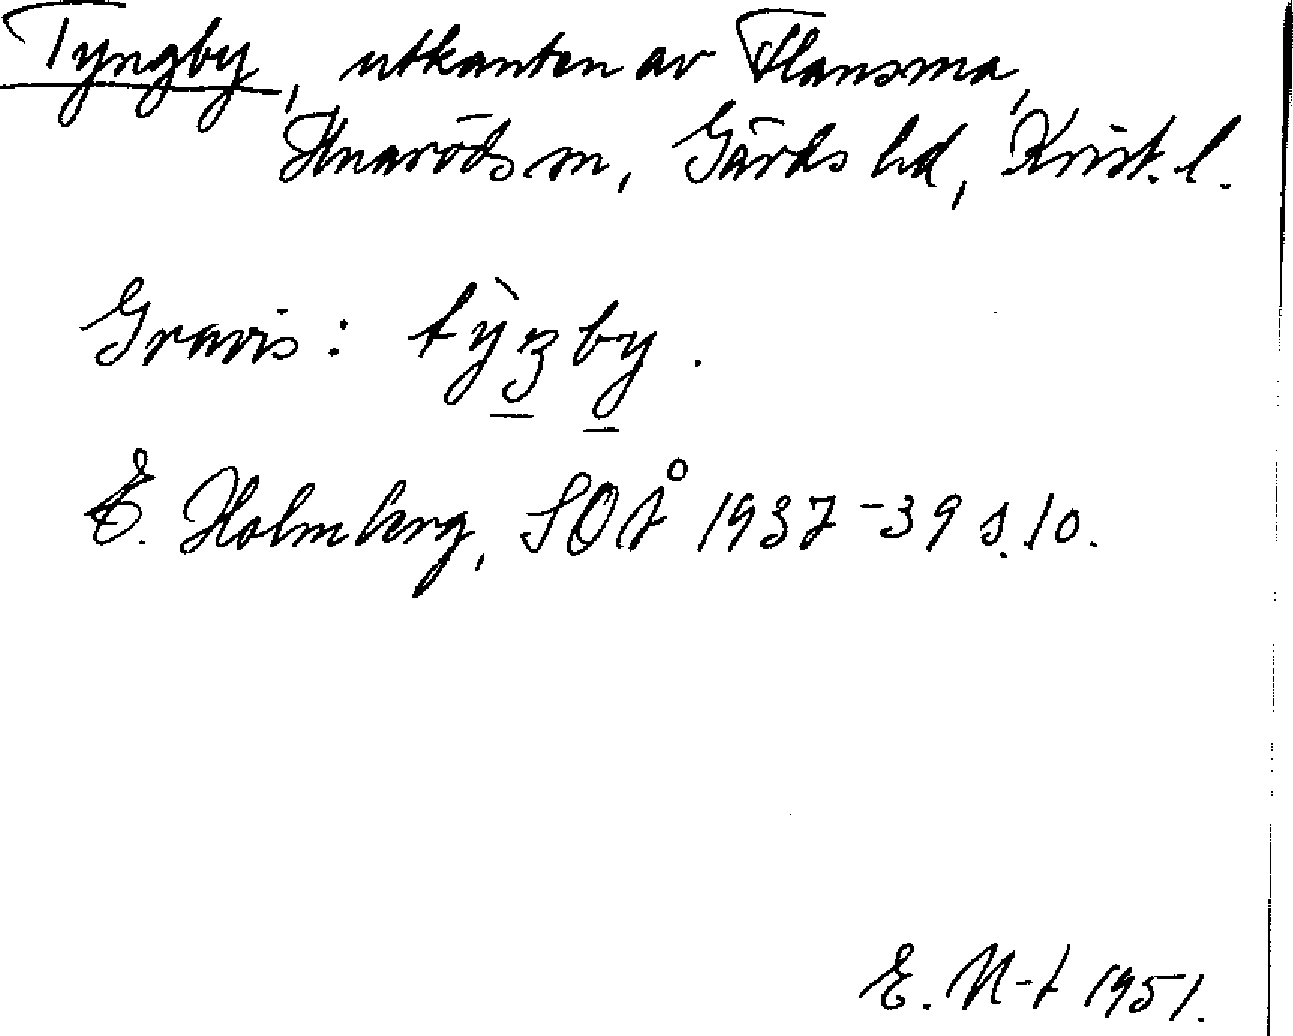 Tyngby, utkanten av Flansma,
Hnaröds sn, Gärds hd, Krist. l.
Gravis: tỳꝫby.
E. Holmberg, SOÅ 1937-39 s. 10.
E. N-t 1951.